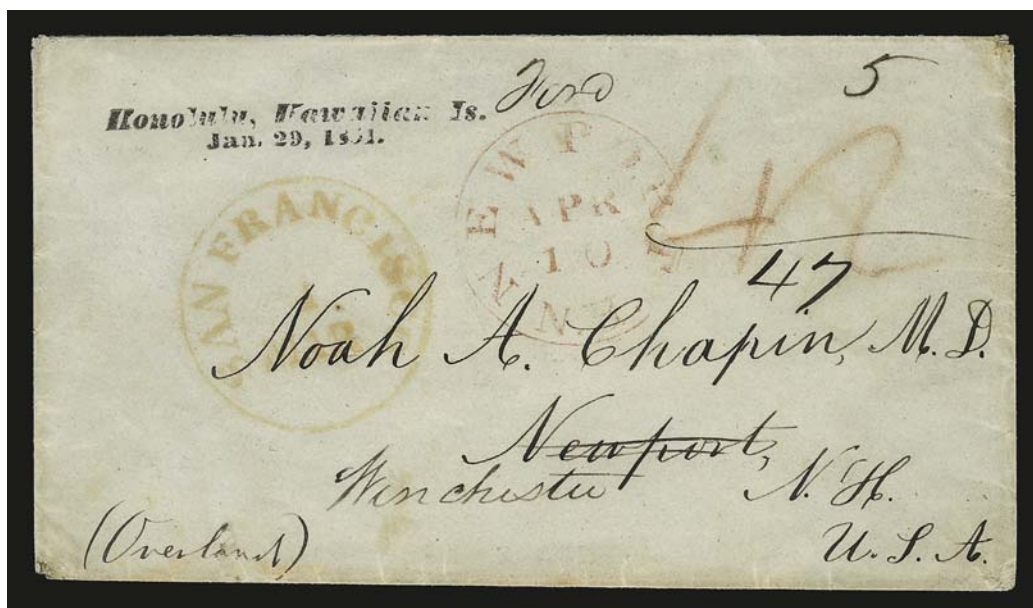 Honolulu, Hawaiian Is.
Jan. 29, 1851.
5
SAN FRANCISCO
NEWPORT
APR
10
N.H.
42
47
Noah A. Chapin, M.D.
Newport,
Winchester N.H.
U.S.A.
(Overland)